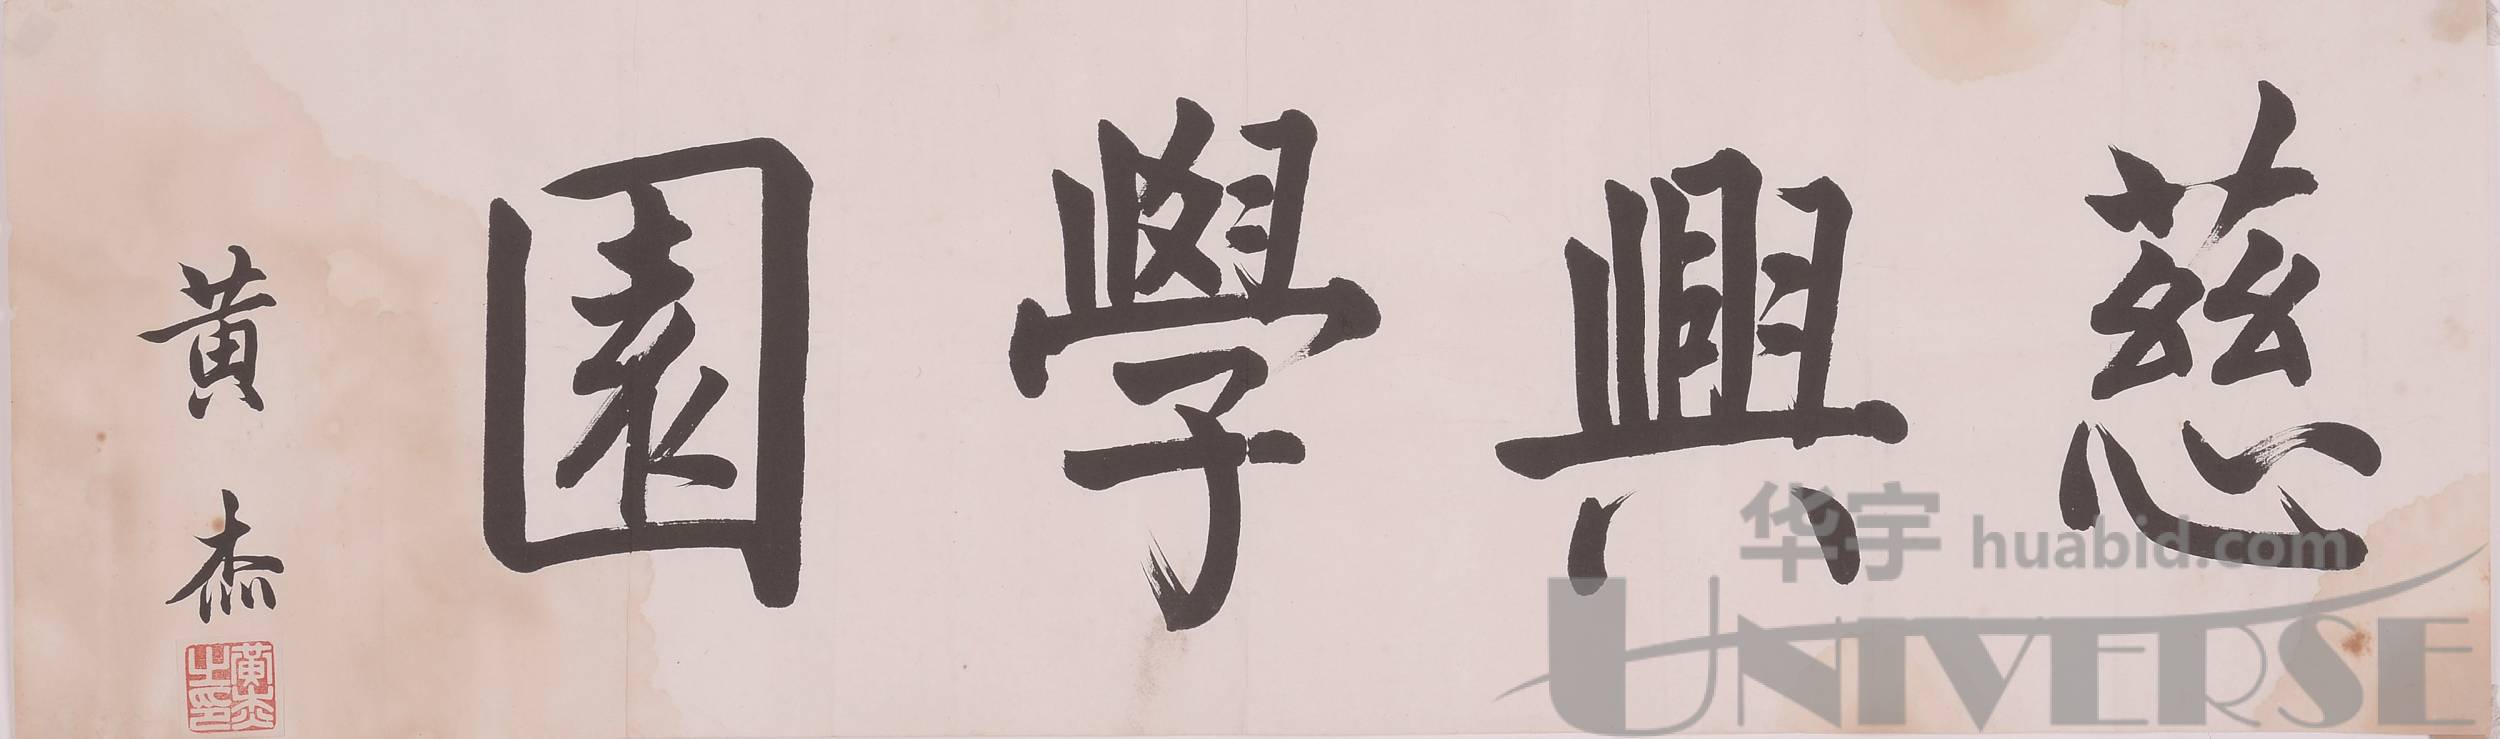 慈興學園
黄杰
黄杰之印
华宇 huabid.com
UNIVERSE